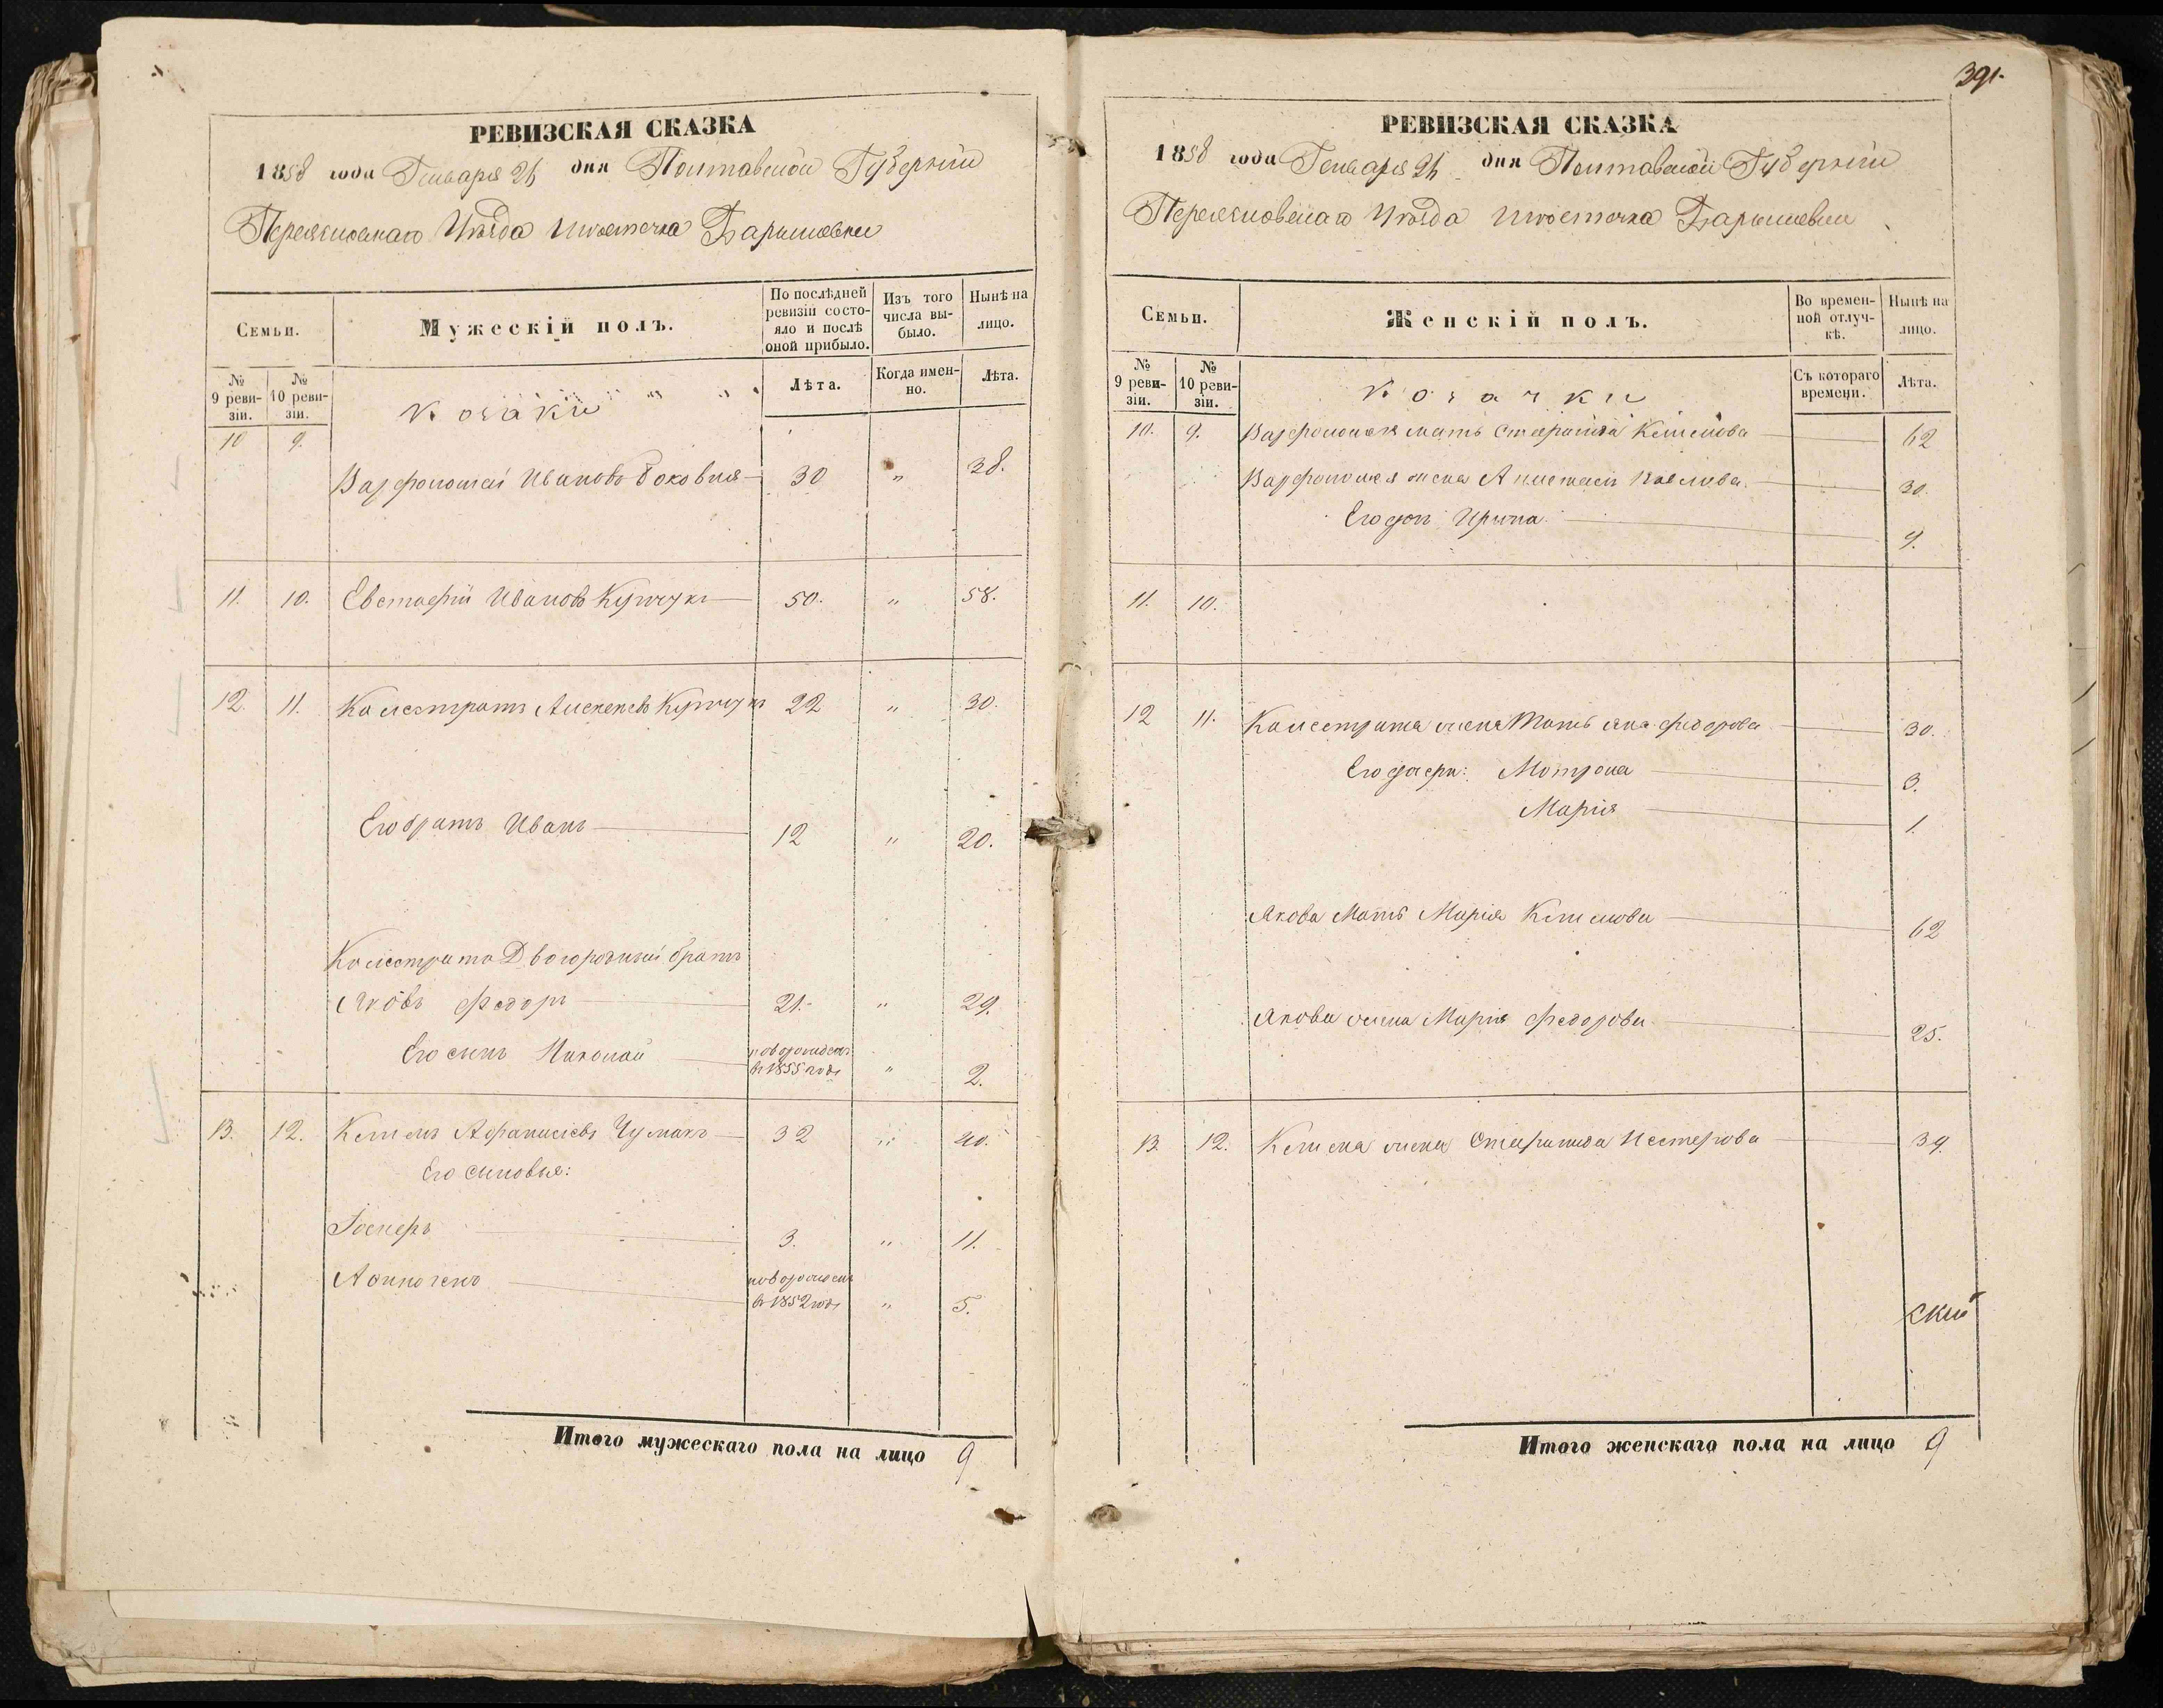 РЕВИЗСКАЯ СКАЗКА
1858 года Генваря 26 дня Полтавской Губерніи
Переяславскаго Уѣзда мѣстечка Барышевки
Семьи.
Мужескій полъ.
По послѣдней ревизіи состояло и послѣ оной прибыло.
Изъ того числа выбыло.
Нынѣ на лицо.
№ 9 ревизіи.
№ 10 ревизіи.
Козаки
Лѣта.
Когда именно.
Лѣта.
10 9.
Варфоломей Ивановъ Боковня 30 " 38.
11. 10. Евстафій Ивановъ Курчукъ 50. " 58.
12. 11. Калистратъ Алексѣевъ Курчукъ 22 " 30.
Его братъ Иванъ 12 " 20.
Калистрата Двоюродный братъ
Яковъ Федоръ 21. " 29.
Его сынъ Николай новорожденъ въ 1855 годѣ " 2.
13. 12. Климъ Афанасіевъ Чумакъ 32 " 40.
Его сыновья:
3. " 11.
новорожденъ въ 1852 годѣ " 5.
Итого мужескаго пола на лицо 9
391.
РЕВИЗСКАЯ СКАЗКА
1858 года Генваря 26 дня Полтавской Губерніи
Переясловскаго Уѣзда мѣстечка Барышевки
Семьи.
Женскій полъ.
Во временной отлучкѣ.
Нынѣ на лицо.
№ 9 ревизіи.
№ 10 ревизіи.
Козачки
Съ котораго времени.
Лѣта.
10. 9. Варфоломея мать Стефанида Климова 62
Варфоломея жена Анастасія Павлова 30.
Его дочь Ирина 9.
11. 10.
12 11. Калистрата жена Татьяна Федорова 30.
Его дочери: Мотрона 3.
Марія 1.
Якова Мать Марія Климова 62
Якова жена Марія Федорова 25.
13. 12. Клима жена Стефанида Нестерова 39.
скій
Итого женскаго пола на лицо 9